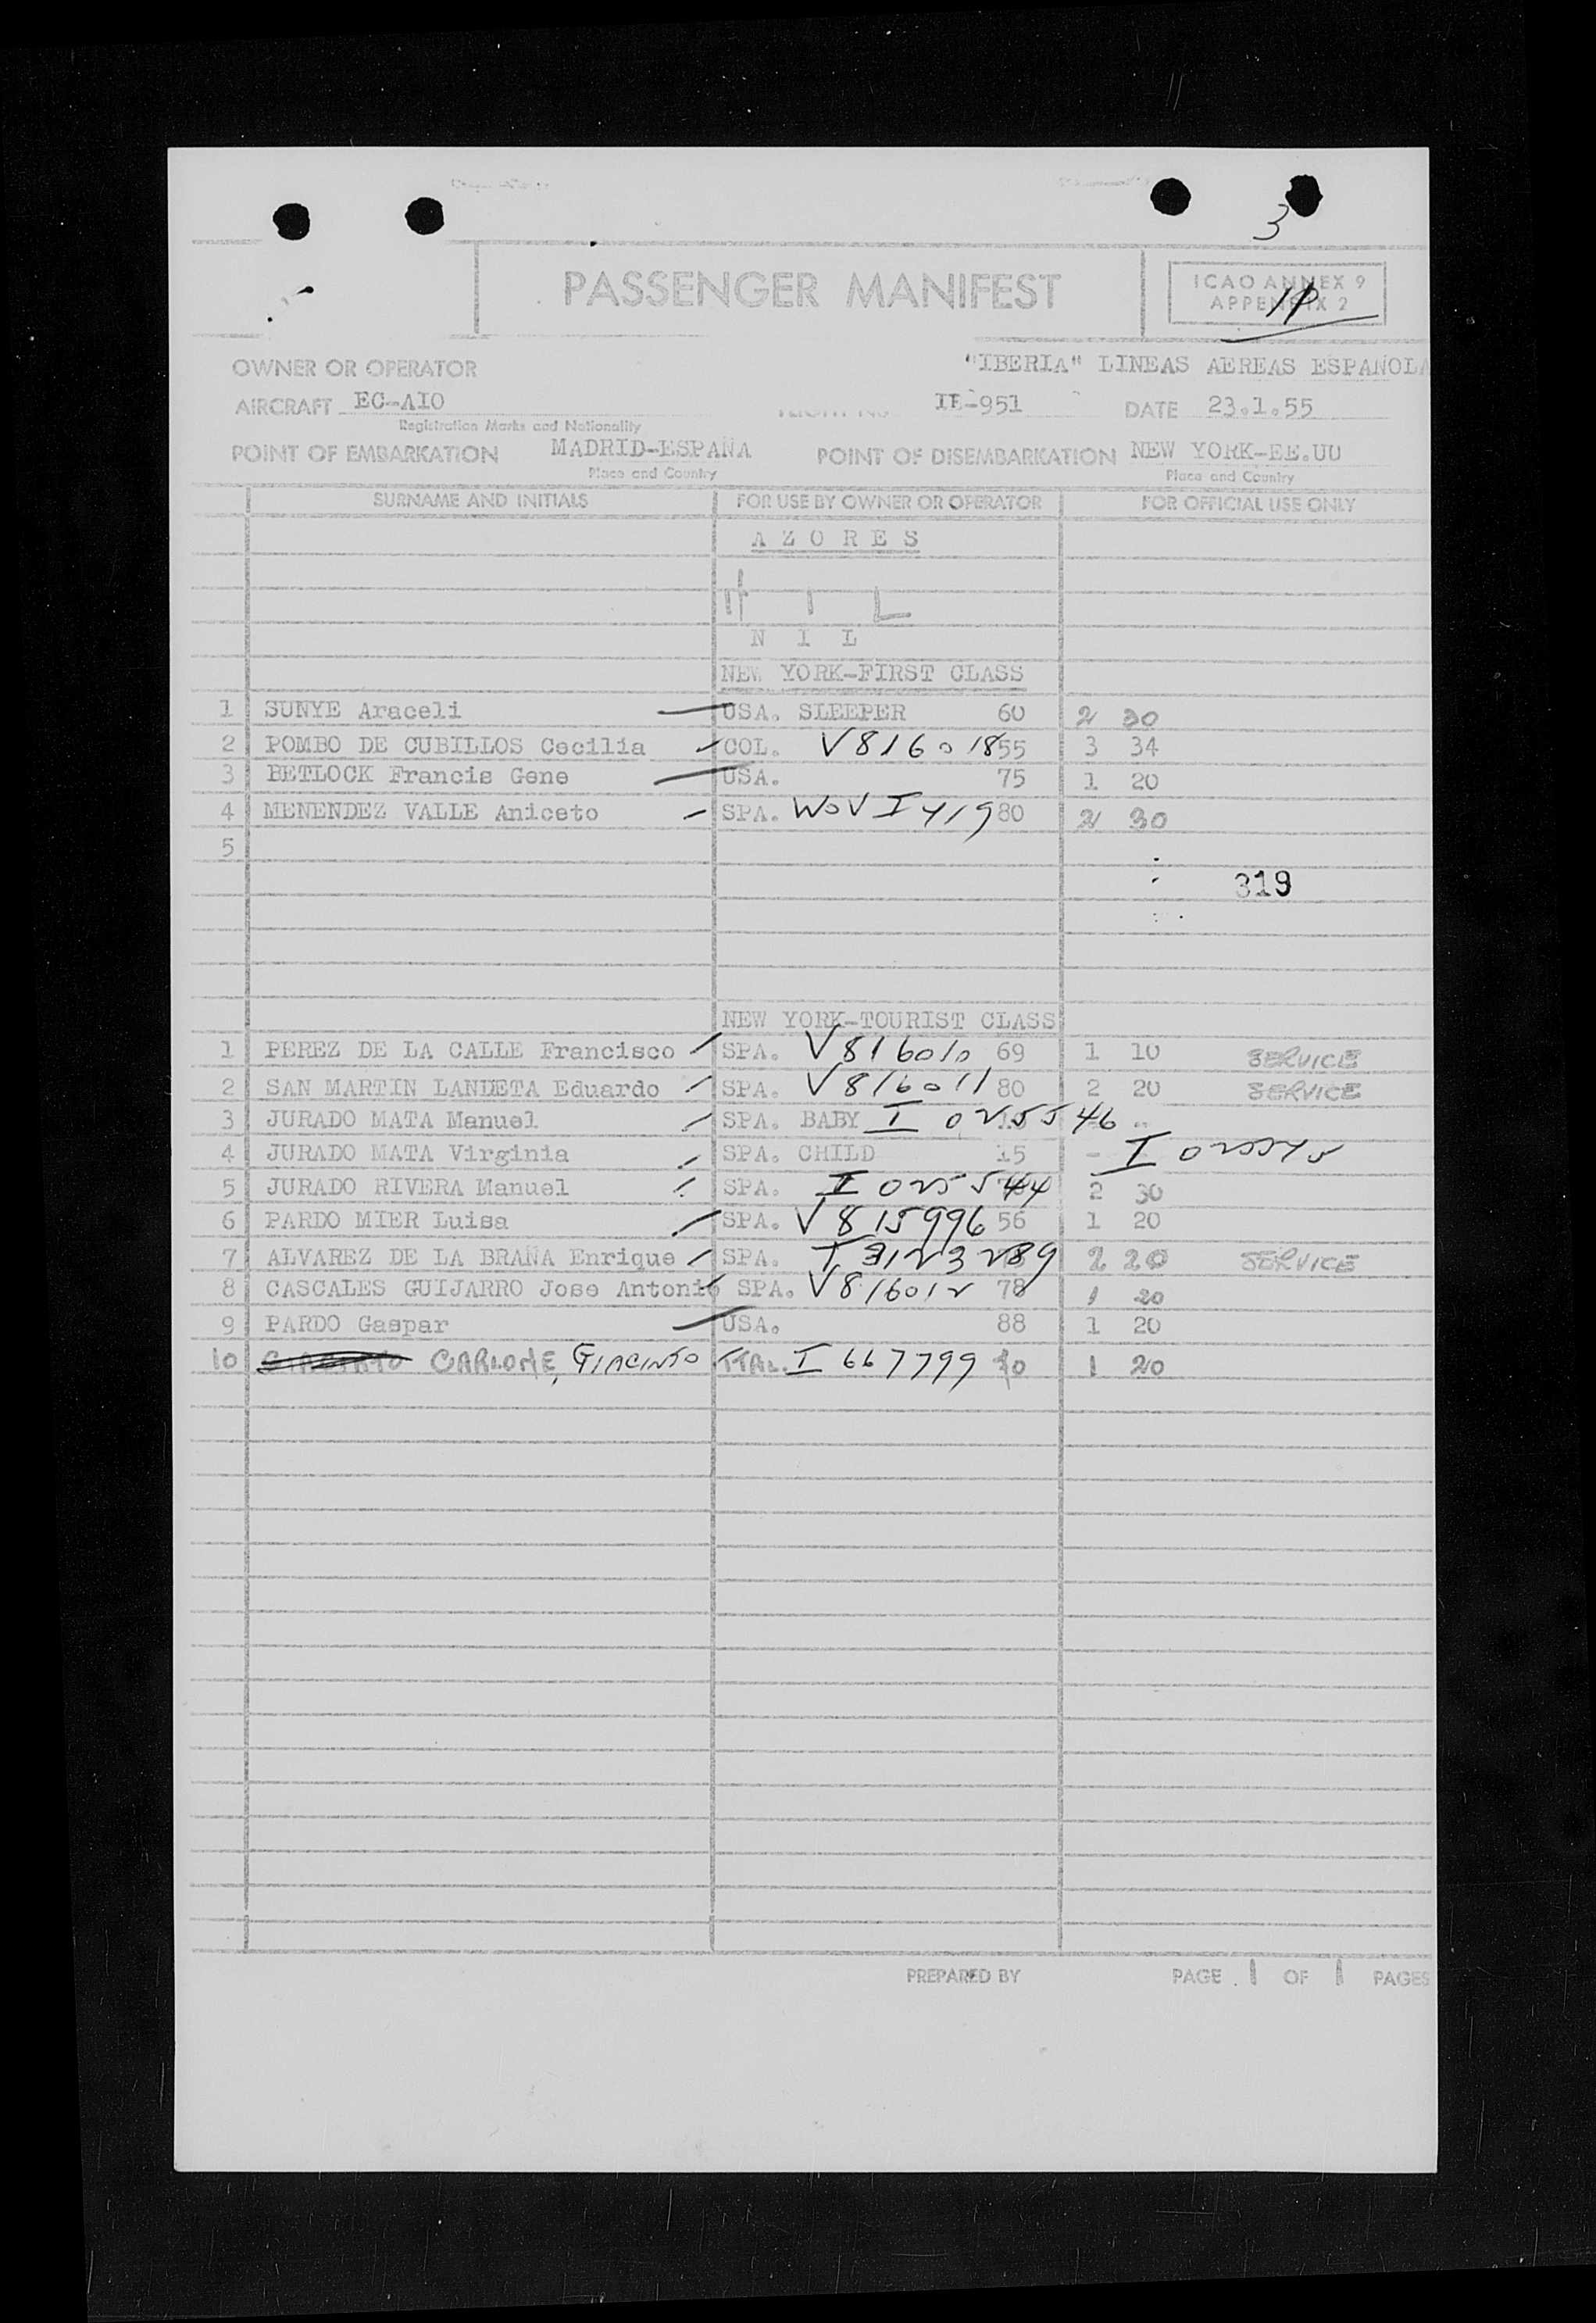 3
PASSENGER MANIFEST
ICAO ANNEX 9
APPENDIX 2
OWNER OR OPERATOR "IBERIA" LINEAS AEREAS ESPAÑOLA
AIRCRAFT EC-AIO IB-951 DATE 23.1.55
Registration Marks and Nationality
POINT OF EMBARKATION MADRID-ESPAÑA POINT OF DISEMBARKATION NEW YORK-EE.UU
Place and Country Place and Country
SURNAME AND INITIALS FOR USE BY OWNER OR OPERATOR FOR OFFICIAL USE ONLY
A Z O R E S
N I L
NEW YORK-FIRST CLASS
1 SUNYE Araceli USA. SLEEPER 60 2 30
2 POMBO DE CUBILLOS Cecilia COL. V816018 55 3 34
3 BETLOCK Francis Gene USA. 75 1 20
4 MENENDEZ VALLE Aniceto SPA. WOV I 419 80 2 30
5
319
NEW YORK-TOURIST CLASS
1 PEREZ DE LA CALLE Francisco SPA. V816010 69 1 10 SERVICE
2 SAN MARTIN LANDETA Eduardo SPA. V816011 80 2 20 SERVICE
3 JURADO MATA Manuel SPA. BABY I 025546
4 JURADO MATA Virginia SPA. CHILD 15 - I 025545
5 JURADO RIVERA Manuel SPA. I 025544 2 30
6 PARDO MIER Luisa SPA. V815996 56 1 20
7 ALVAREZ DE LA BRAÑA Enrique SPA. 2 20 SERVICE
8 CASCALES GUIJARRO Jose Antonio SPA. V816012 78 1 20
9 PARDO Gaspar USA. 88 1 20
10 CARLONE, GIACINTO ITAL. I 667799 1 20
PREPARED BY PAGE 1 OF 1 PAGES